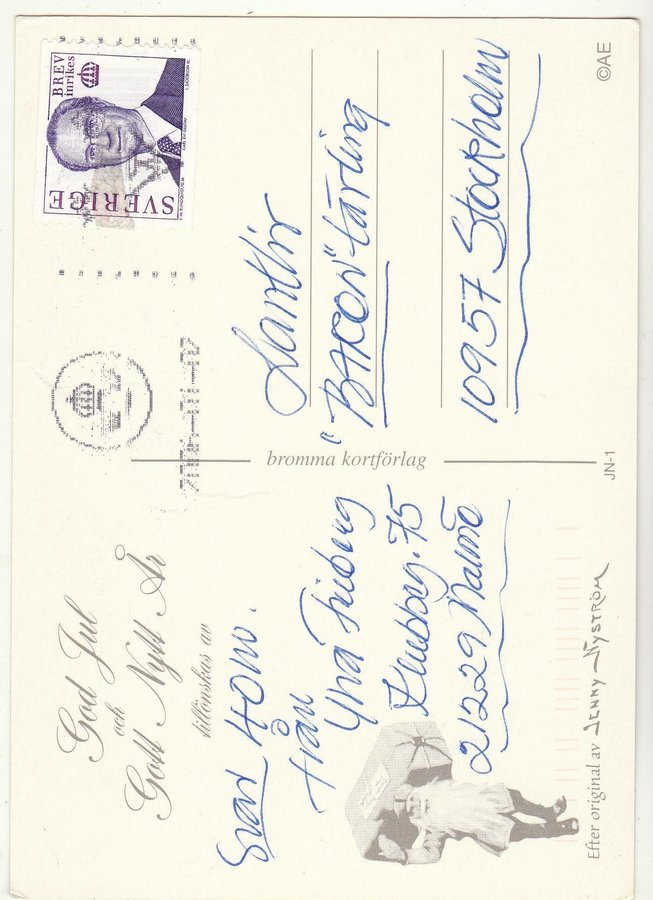 God Jul
och
Gott Nytt År
tillönskas av
Svar HOW.
från
Yna Friberg
75
21229 Malmö
Efter original av JENNY NYSTRÖM
bromma kortförlag
JN-1
BREV
inrikes
SVERIGE
"BACON"-tävling
10957 Stockholm
©AE